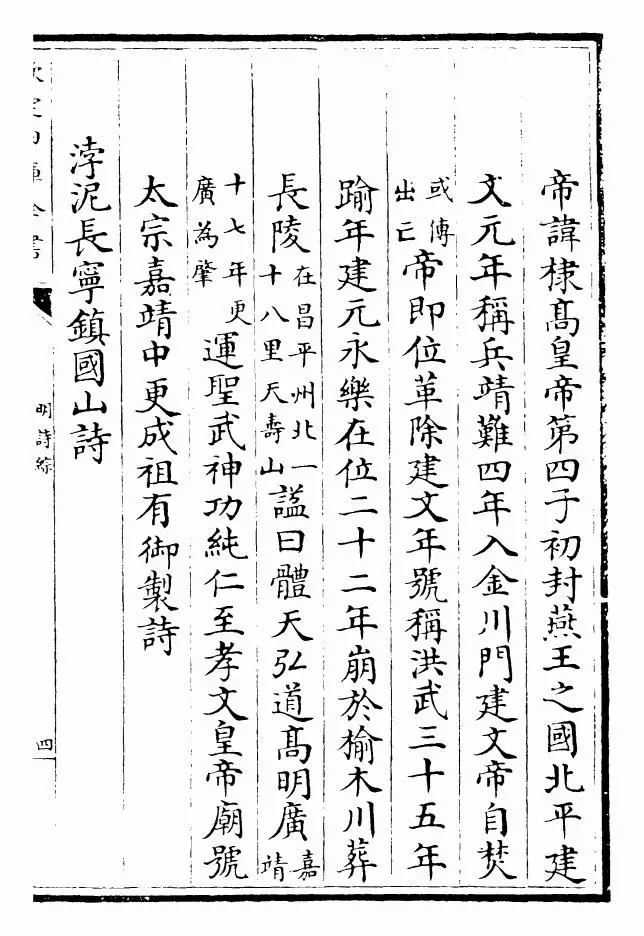 帝諱棣髙皇帝第四子初封燕王之國北平建
文元年稱兵靖難四年入金川門建文帝自焚
或傳出亡帝即位革除建文年號稱洪武三十五年
踰年建元永樂在位二十二年崩於榆木川葬
長陵在昌平州北一十八里天壽山諡曰體天弘道髙明廣嘉靖
十七年更廣為肇運聖武神功純仁至孝文皇帝廟號
太宗嘉靖中更成祖有御製詩
浡泥長寧鎮國山詩
欽定四庫全書
明詩綜
四